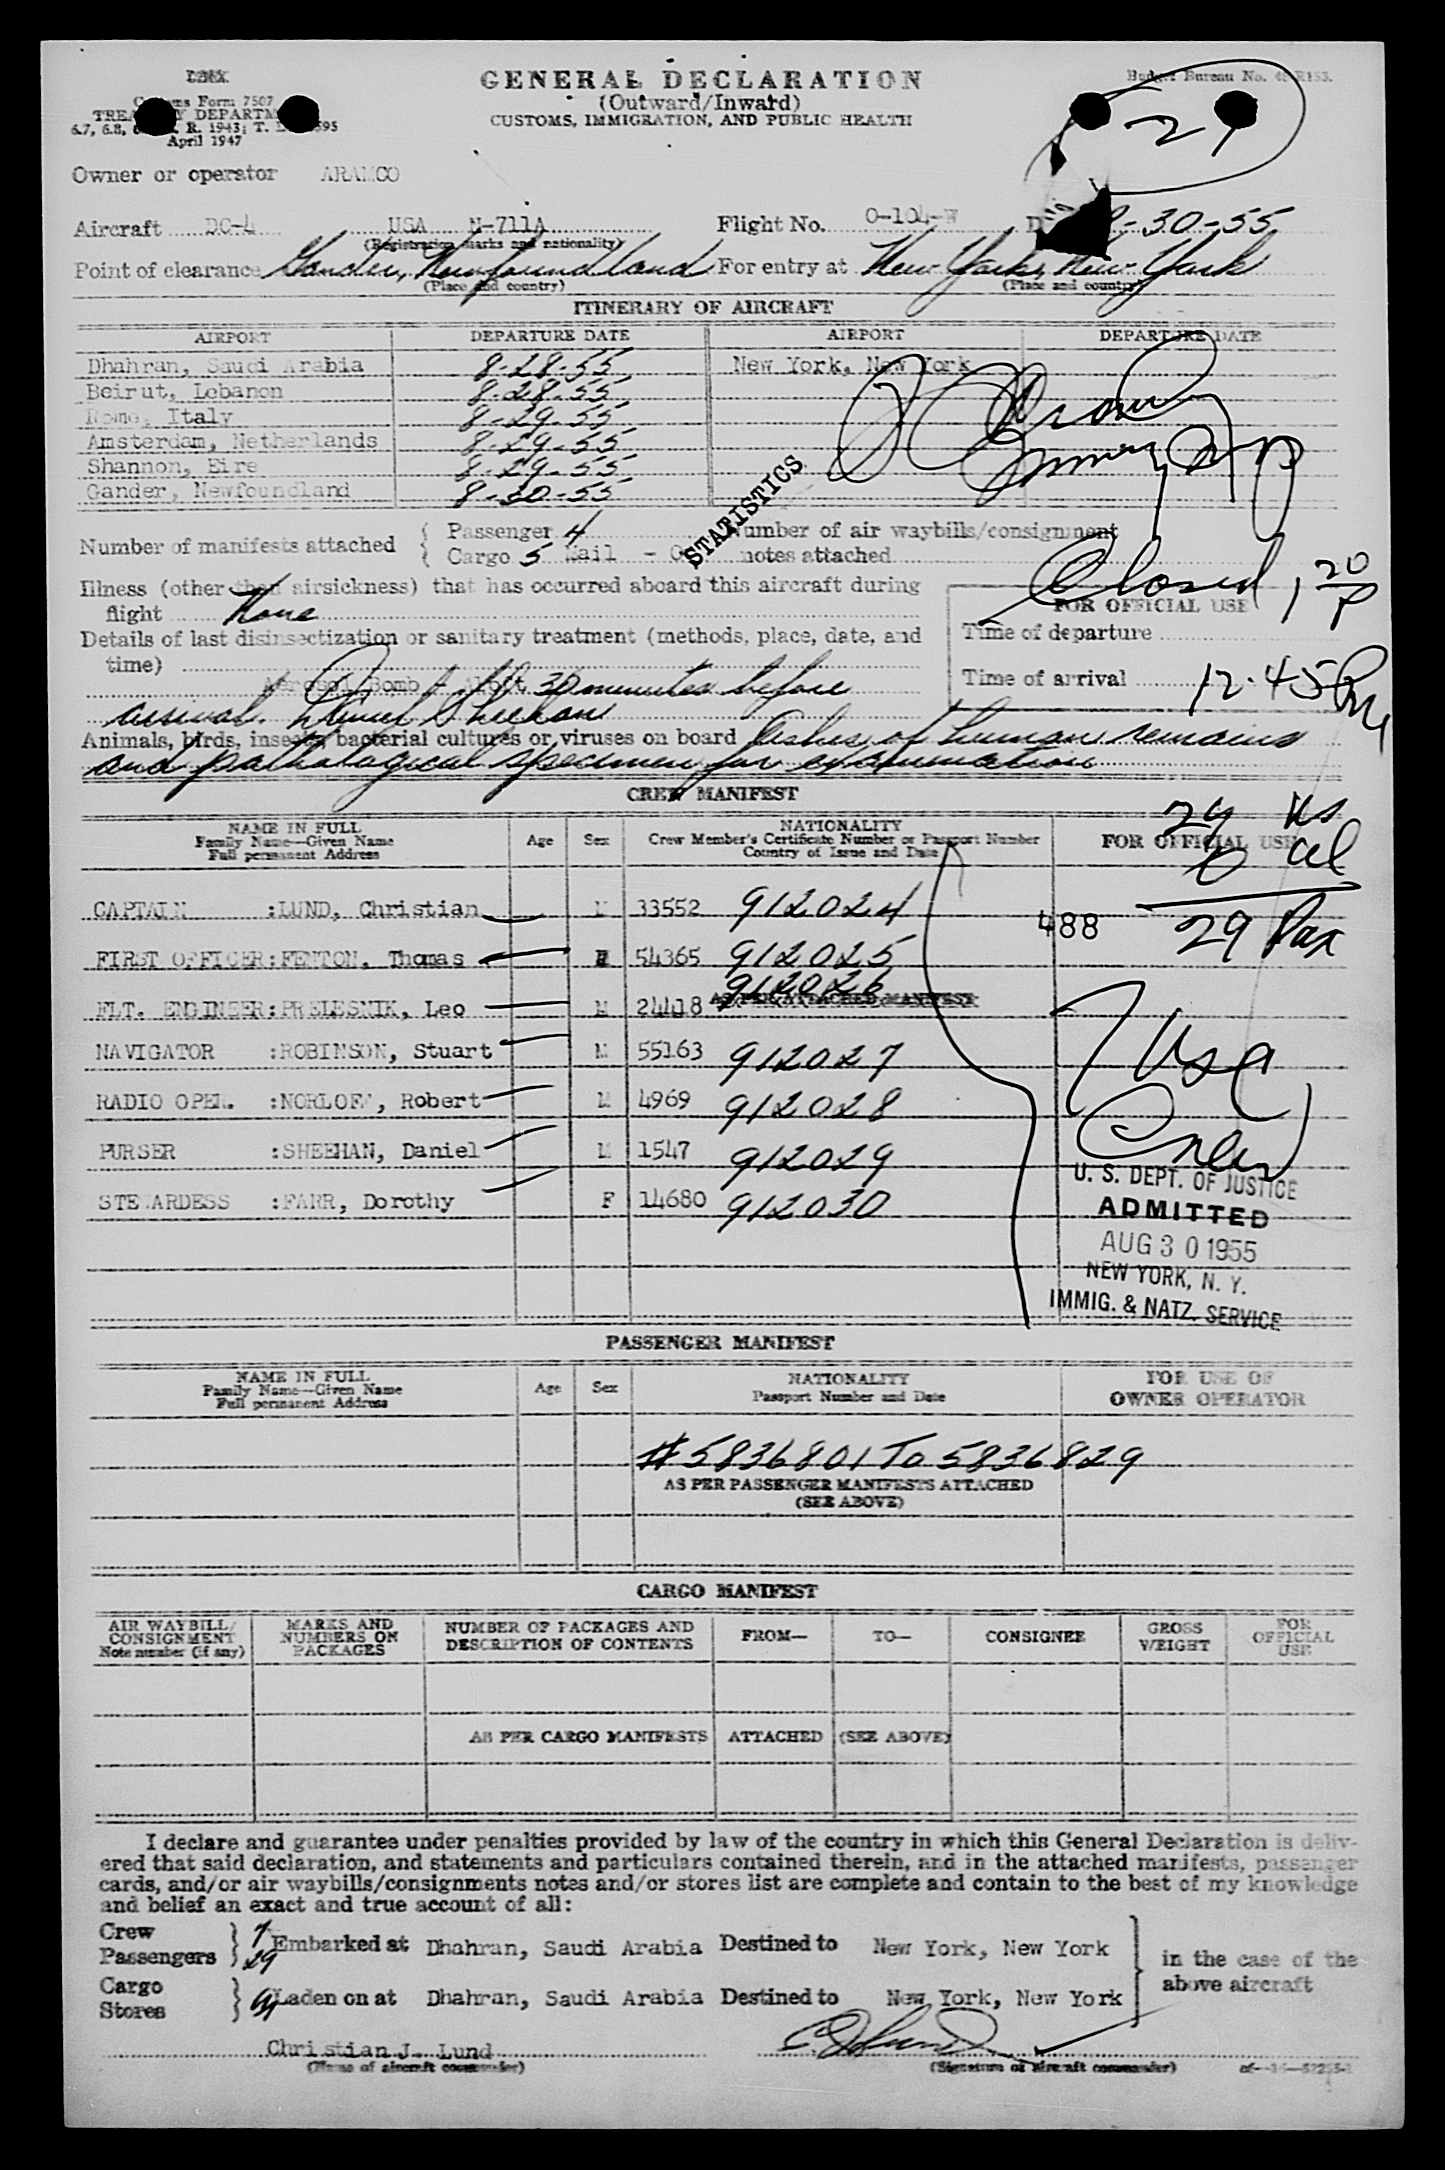 GENERAL DECLARATION
(Outward/Inward)
CUSTOMS, IMMIGRATION, AND PUBLIC HEALTH
Form 7507
April 1947
Budget Bureau No.
29
Owner or operator ARAMCO
Aircraft DC-4 USA N-711A Flight No. O-104-W 8-30-55
(Registration marks and nationality)
Point of clearance Gander, Newfoundland For entry at New York, New York
(Place and country) (Place and country)
ITINERARY OF AIRCRAFT
AIRPORT DEPARTURE DATE AIRPORT DEPARTURE DATE
Dhahran, Saudi Arabia 8-28-55 New York, New York
Beirut, Lebanon 8-28-55
Rome, Italy 8-29-55
Amsterdam, Netherlands 8-29-55
Shannon, Eire 8-29-55
Gander, Newfoundland 8-30-55
STATISTICS
Number of manifests attached { Passenger 4 Number of air waybills/consignment
{ Cargo 5 Mail - notes attached
Closed 1 20 P
Illness (other than airsickness) that has occurred aboard this aircraft during
flight None
FOR OFFICIAL USE
Details of last disinsectization or sanitary treatment (methods, place, date, and
time)
Time of departure
Aerosol Bomb - 30 minutes before
Time of arrival 12.45 Pm
arrival. Daniel Sheehan
Animals, birds, insects, bacterial cultures or viruses on board Ashes of human remains
and pathological specimen for examination
CREW MANIFEST
NAME IN FULL
Family Name—Given Name
Full permanent Address
Age Sex
NATIONALITY
Crew Member's Certificate Number or Passport Number
Country of Issue and Date
FOR OFFICIAL USE
29 us
0 al
29 Pax
488
CAPTAIN :LUND, Christian M 33552 912024
FIRST OFFICER:FENTON, Thomas M 54365 912025
FLT. ENGINEER:PRELESNIK, Leo M 24418 912026
AS PER ATTACHED MANIFEST
NAVIGATOR :ROBINSON, Stuart M 55163 912027
RADIO OPER. :NORLOFF, Robert M 4969 912028
PURSER :SHEEHAN, Daniel M 1547 912029
STEWARDESS :FARR, Dorothy F 14680 912030
7 Usa
Crew
U. S. DEPT. OF JUSTICE
ADMITTED
AUG 30 1955
NEW YORK, N. Y.
IMMIG. & NATZ. SERVICE
PASSENGER MANIFEST
NAME IN FULL
Family Name—Given Name
Full permanent Address
Age Sex
NATIONALITY
Passport Number and Date
FOR USE OF
OWNER OPERATOR
#5836801 To 5836829
AS PER PASSENGER MANIFESTS ATTACHED
(SEE ABOVE)
CARGO MANIFEST
AIR WAYBILL/
CONSIGNMENT
Note number (if any)
MARKS AND
NUMBERS ON
PACKAGES
NUMBER OF PACKAGES AND
DESCRIPTION OF CONTENTS
FROM— TO— CONSIGNEE
GROSS
WEIGHT
FOR
OFFICIAL
USE
AS PER CARGO MANIFESTS ATTACHED (SEE ABOVE)
I declare and guarantee under penalties provided by law of the country in which this General Declaration is deliv-
ered that said declaration, and statements and particulars contained therein, and in the attached manifests, passenger
cards, and/or air waybills/consignments notes and/or stores list are complete and contain to the best of my knowledge
and belief an exact and true account of all:
Crew 7
Passengers 29 Embarked at Dhahran, Saudi Arabia Destined to New York, New York
in the case of the
above aircraft
Cargo
Stores Laden on at Dhahran, Saudi Arabia Destined to New York, New York
Christian J. Lund C J Lund
(Name of aircraft commander) (Signature of aircraft commander)